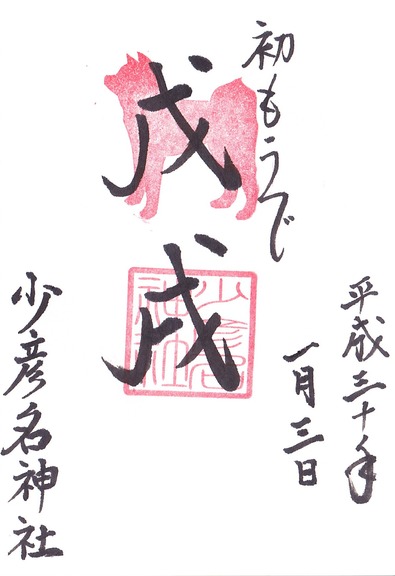 初もうで
平成三十年
一月三日
戊
戌
少彦名神社
少彦名
神社